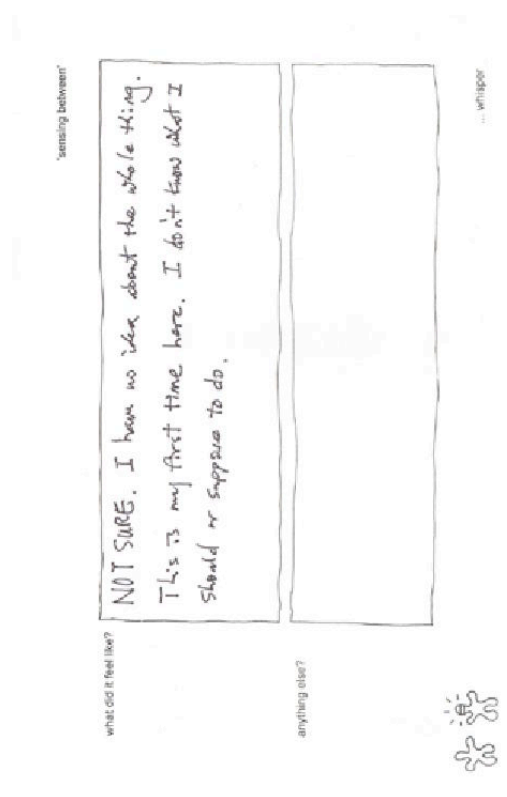 'sensing between'
what did it feel like?
NOT SURE. I have no idea about the whole thing.
This is my first time here. I don't know what I
should or suppose to do.
anything else?
... whisper